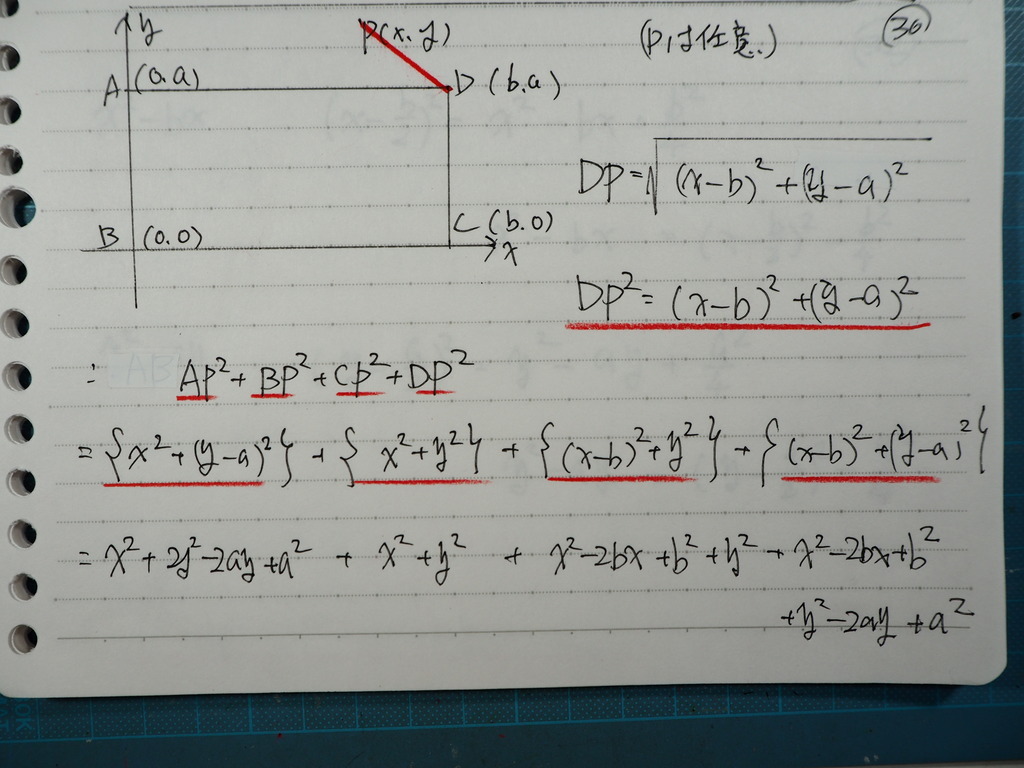 y P(x.y) (Pは任意.) (36)
A (0.a) D (b.a)
DP=√(x-b)²+(y-a)²
B (0.0) C (b.0)
x
DP²=(x-b)²+(y-a)²
∴ AP²+BP²+CP²+DP²
={x²+(y-a)²}+{x²+y²}+{(x-b)²+y²}+{(x-b)²+(y-a)²}
=x²+2y²-2ay+a²+x²+y²+x²-2bx+b²+y²+x²-2bx+b²
+y²-2ay+a²